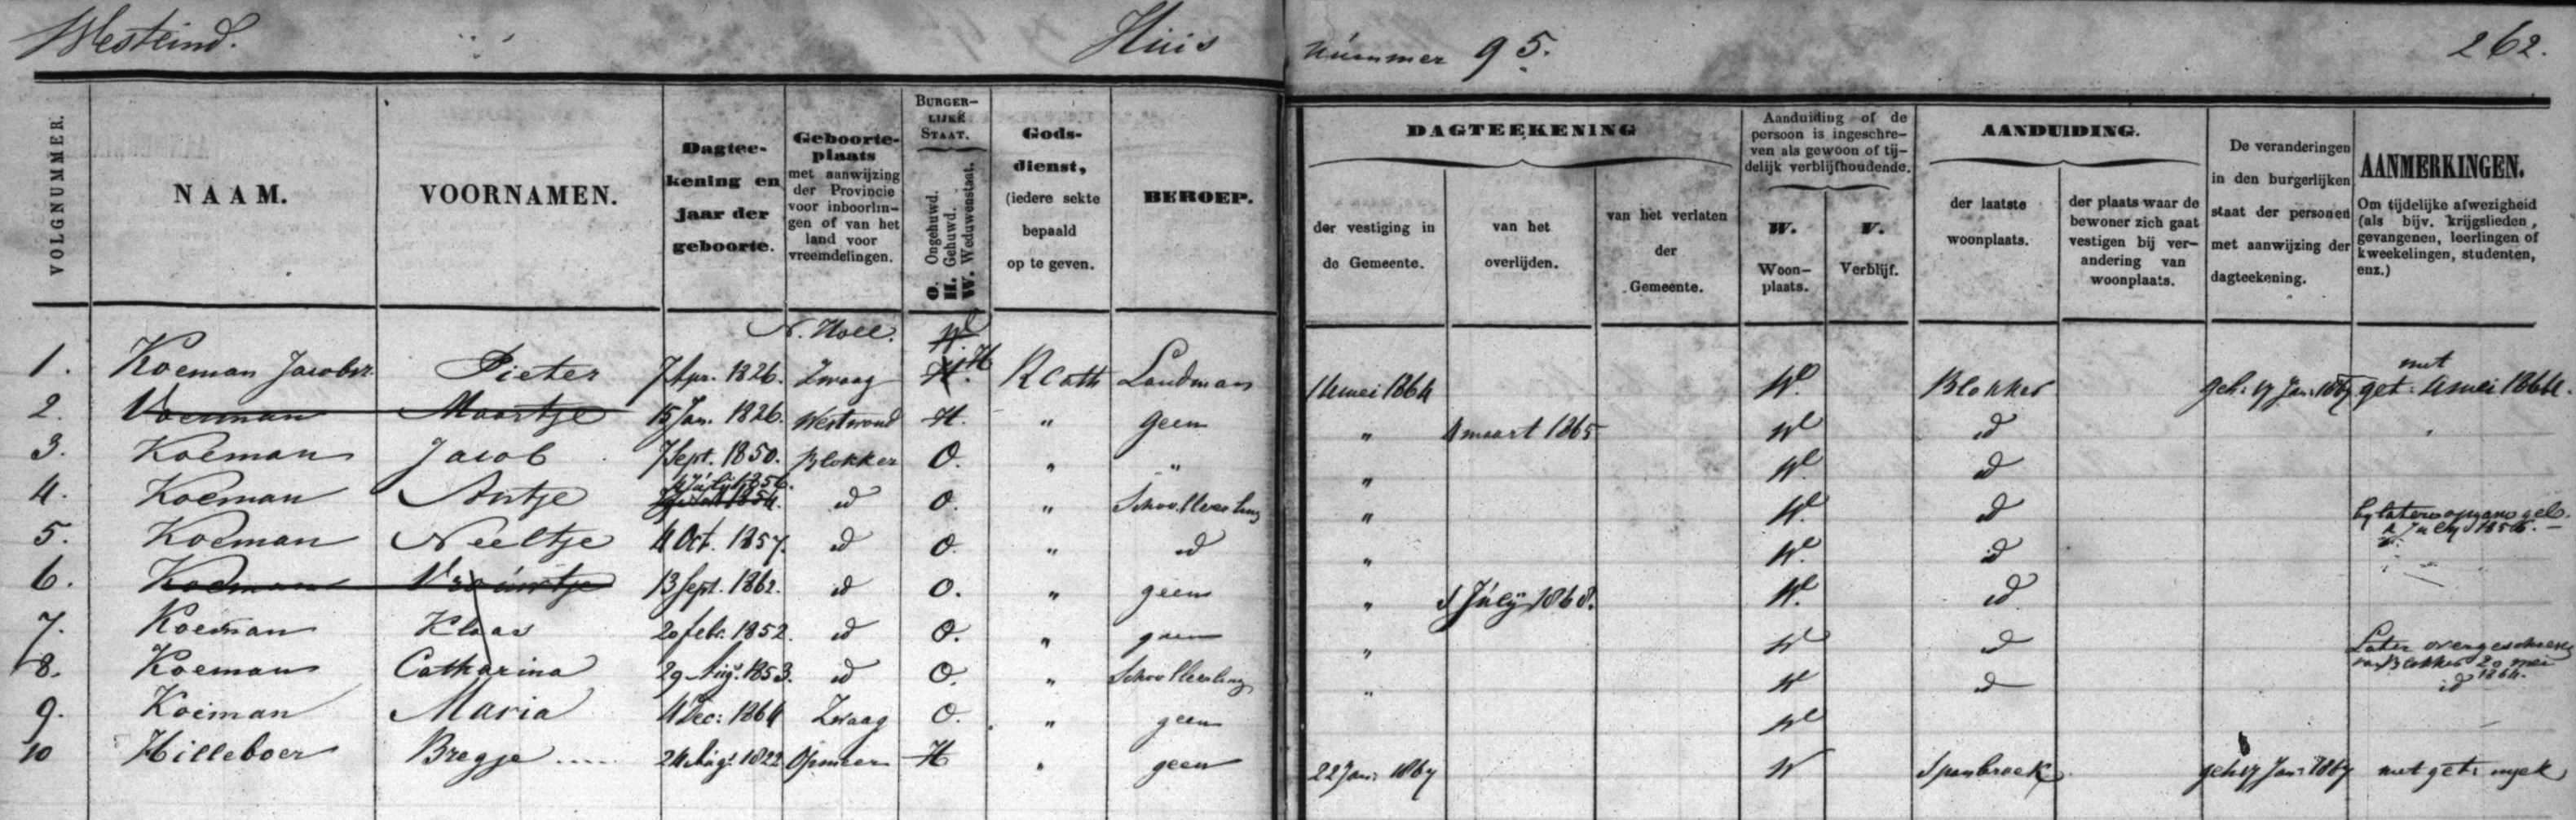 Westeind. Huis nummer 95. 262.
VOLGNUMMER.
NAAM.
VOORNAMEN.
Dagtee-
kening en
jaar der
geboorte.
Geboorte-
plaats
met aanwijzing
der Provincie
voor inboorlin-
gen of van het
land voor
vreemdelingen.
BURGER-
LIJKE
STAAT.
O. Ongehuwd.
H. Gehuwd.
W. Weduwenstaat.
Gods-
dienst,
(iedere sekte
bepaald
op te geven.
BEROEP.
DAGTEEKENING
der vestiging in
de Gemeente.
van het
overlijden.
van het verlaten
der
Gemeente.
Aanduiding of de
persoon is ingeschre-
ven als gewoon of tij-
delijk verblijfhoudende.
W.
Woon-
plaats.
V.
Verblijf.
AANDUIDING.
der laatste
woonplaats.
der plaats waar de
bewoner zich gaat
vestigen bij ver-
andering van
woonplaats.
De veranderingen
in den burgerlijken
staat der personen
met aanwijzing der
dagteekening.
AANMERKINGEN.
Om tijdelijke afwezigheid
(als bijv. krijgslieden,
gevangenen, leerlingen of
kweekelingen, studenten,
enz.)
N. Holl. W.
1. Koeman Jacobsz. Pieter 7 Apr. 1826. Zwaag H. H R Cath Landman 14 mei 1864 W. Blokker geh: 17 Jan: 1867 met get: 4 mei 1864.
2. Koeman Maartje 15 Jan. 1826. Westwoud H. " geen " 4 maart 1865 W id
3. Koeman Jacob 7 Sept. 1850. Blokker O. " " " W id
4 July 1856.
4. Koeman Antje id O. " Schoolleerling " W. id by latere opgave geb.
4 July 1856. —
5. Koeman Neeltje 4 Oct. 1857. id O. " id " W. id
6. Koeman Vrouwtje 13 Sept. 1862. id O. " geen " 1 July 1868. W. id
7. Koeman Klaas 20 febr. 1852. id O. " geen " W id Later overgeschreven
van Blokker 20 mei
1864.
8. Koeman Catharina 29 Aug. 1853. id O. " Schoolleerling " W id id
9. Koeman Maria 4 Dec: 1864 Zwaag O. " geen W
10 Hilleboer Bregje ..... 24 Aug. 1822 Opmeer H " geen 22 Jan: 1867 W Spanbroek geh 17 Jan: 1867 met get: